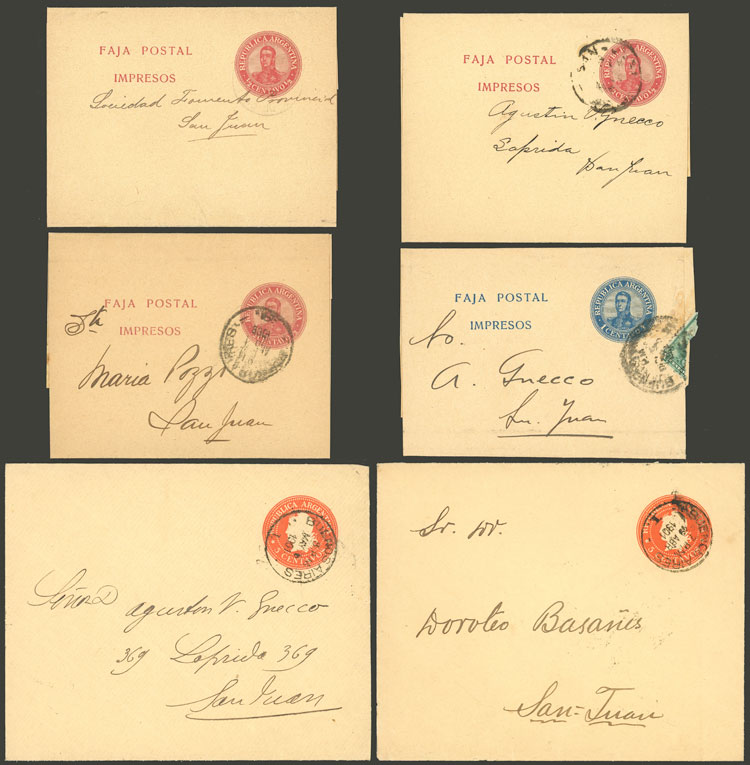 FAJA POSTAL
IMPRESOS
REPUBLICA ARGENTINA
Sociedad Fomento Provincial
San Juan
FAJA POSTAL
IMPRESOS
Agustin V. Gnecco
Laprida
San Juan
FAJA POSTAL
IMPRESOS
REPUBLICA ARGENTINA
BUENOS AIRES
Sta
Maria Pozzo
San Juan
FAJA POSTAL
IMPRESOS
REPUBLICA ARGENTINA
1 CENTAVO
A. Gnecco
Sn. Juan
REPUBLICA ARGENTINA
5 CENTAVOS
BUENOS AIRES
MAY
Señor D
Agustin V. Gnecco
369 Laprida 369
San Juan
BUENOS AIRES
1901
Sr. Dr.
Doroteo Basañes
San-Juan